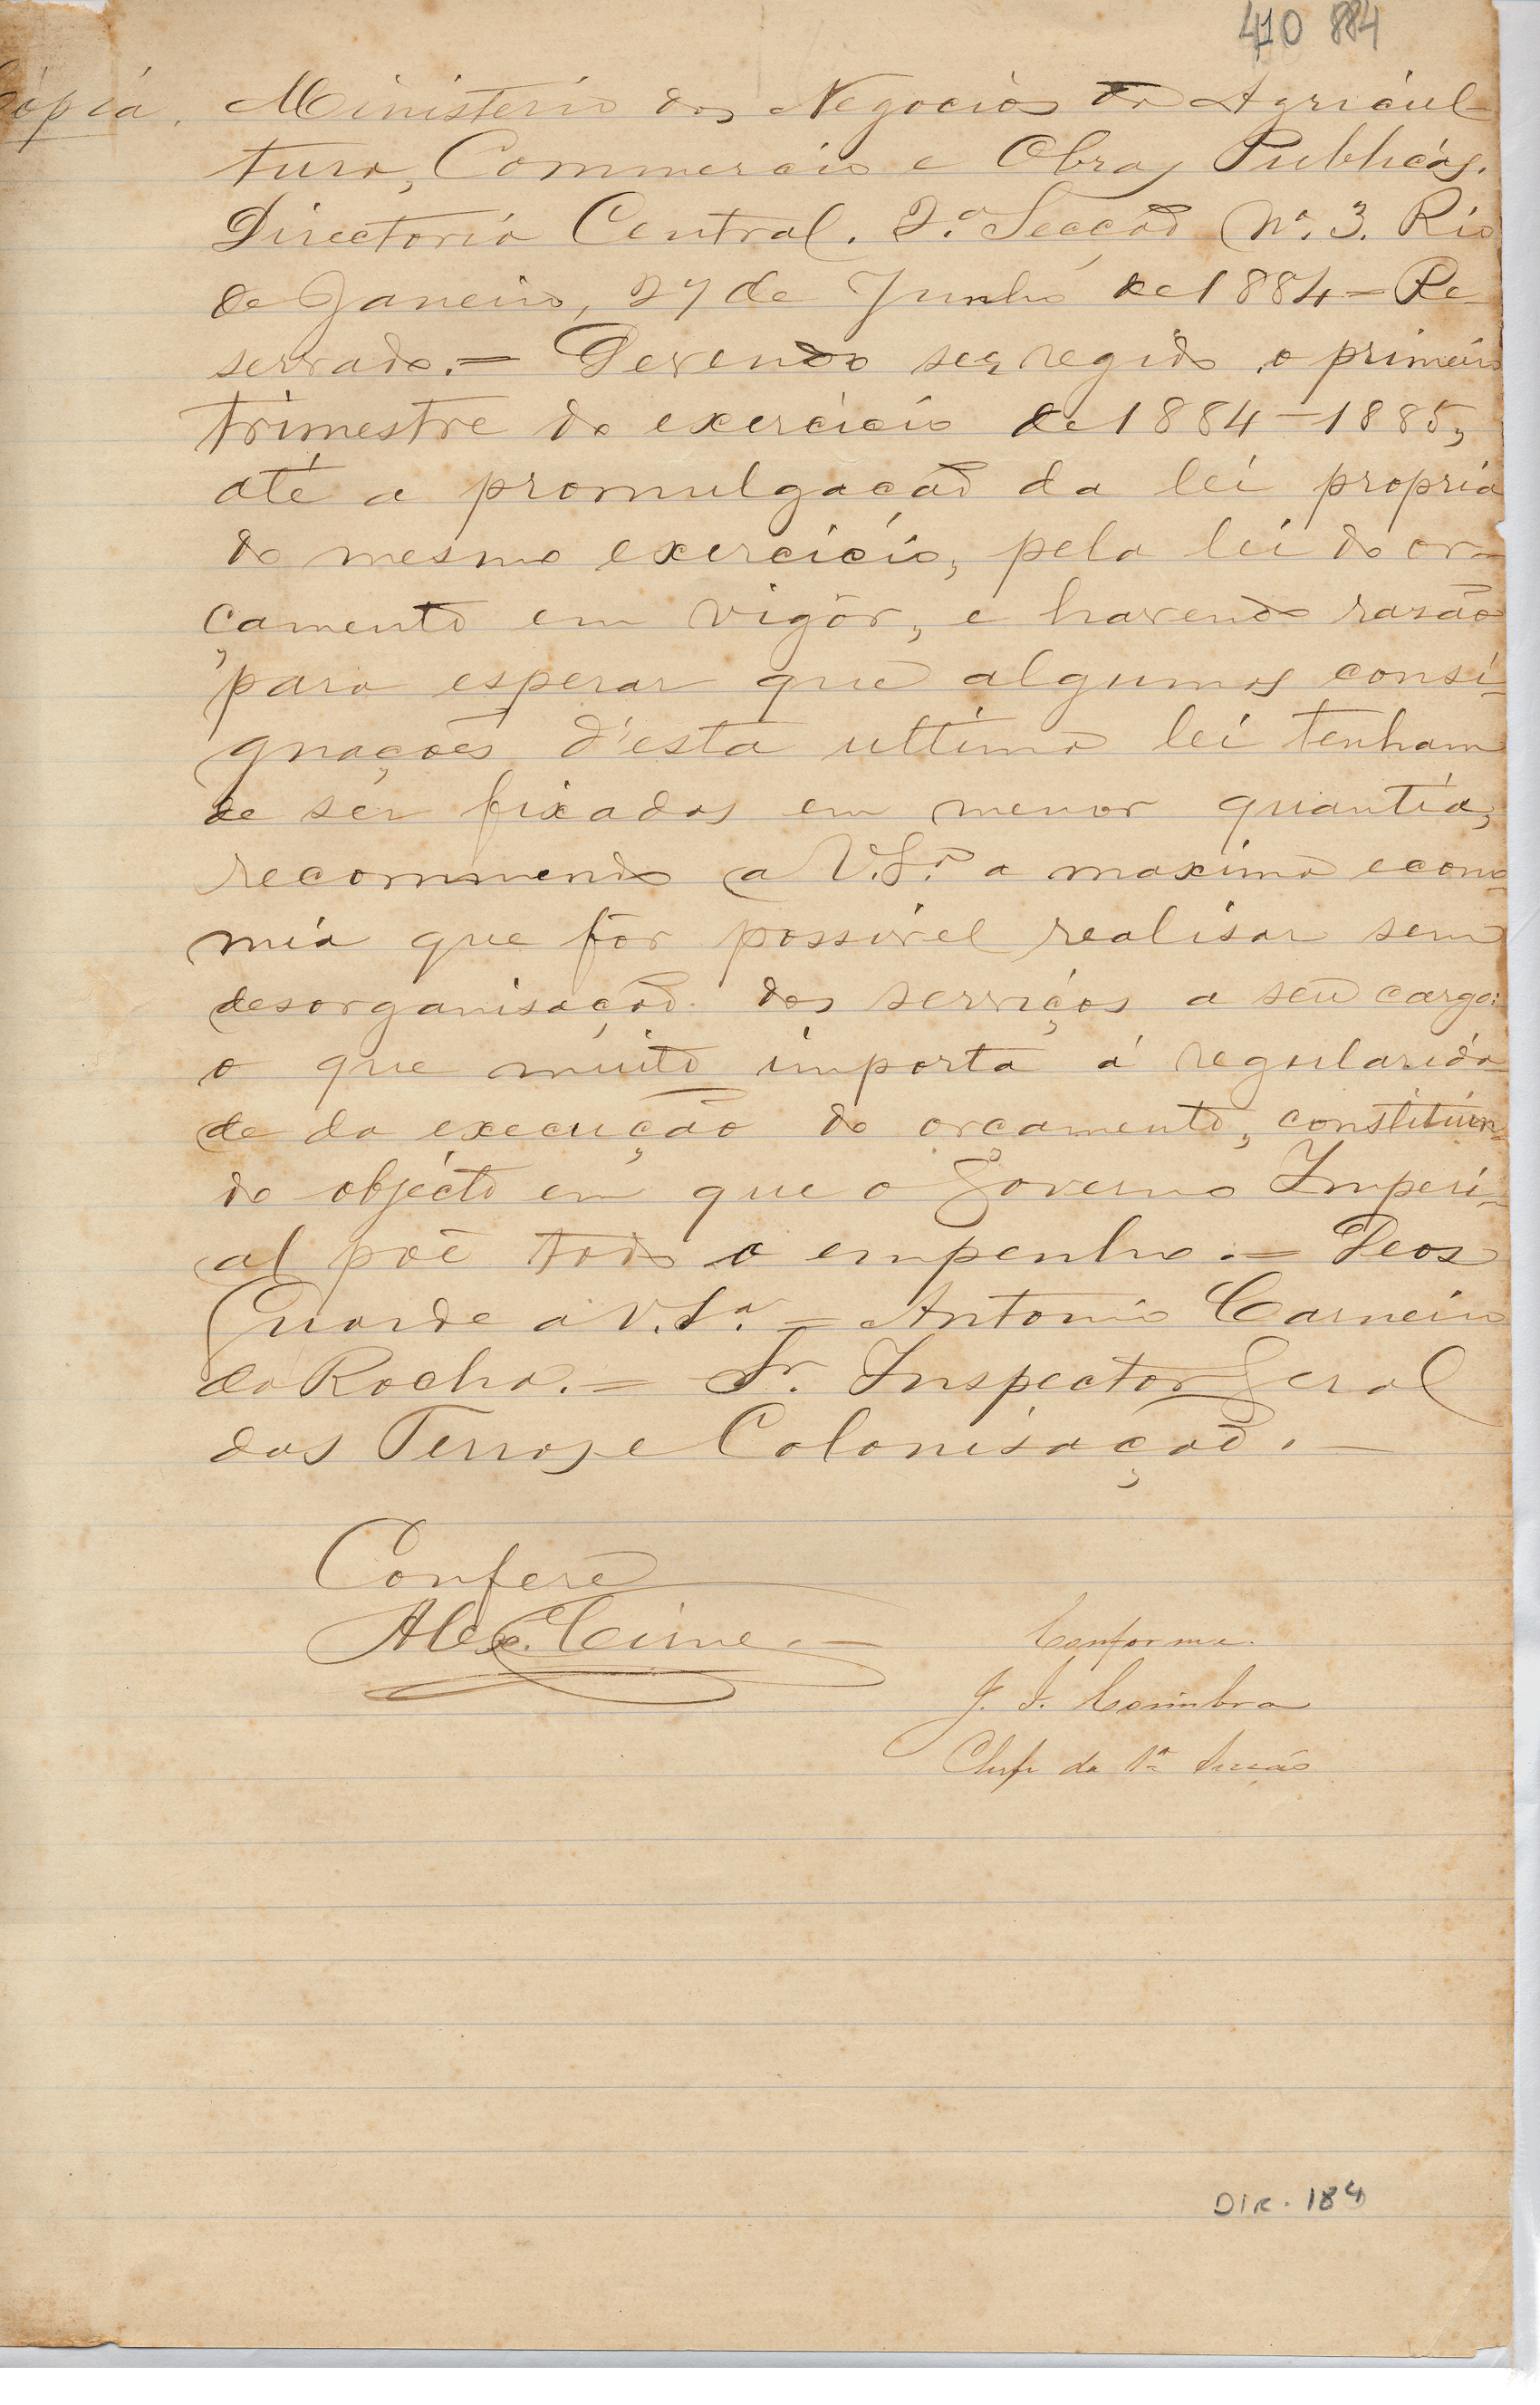 410 884
Cópia. Ministerio dos Negocios da Agricul-
tura, Commercio e Obras Publicas.
Directoria Central. 2.ª Secção Nº. 3. Rio
de Janeiro, 27 de Junho de 1884 = Re-
servado. = Devendo ser regido o primeiro
trimestre do exercicio de 1884-1885,
até a promulgação da lei propria
do mesmo exercicio, pela lei do or-
çamento em vigôr, e havendo rasão
para esperar que algumas consi-
gnações d'esta ultima lei tenham
de ser fixadas em menor quantia,
recommendo a V.Sª. a maxima econo-
mia que fôr possivel realisar sem
desorganisação dos serviços a seu cargo:
o que muito importa á regularida-
de da execução do orçamento, constituin-
do objecto em que o Governo Imperi-
al põe todo o empenho. = Deos
Guarde a V.Sª. = Antonio Carneiro
da Rocha. = Sr. Inspector Geral
das Terras e Colonisação. —
Confere
Alex. Cirne. —
Conforme.
J. J. Coimbra
Chefe da 1ª Secção
DIR. 184